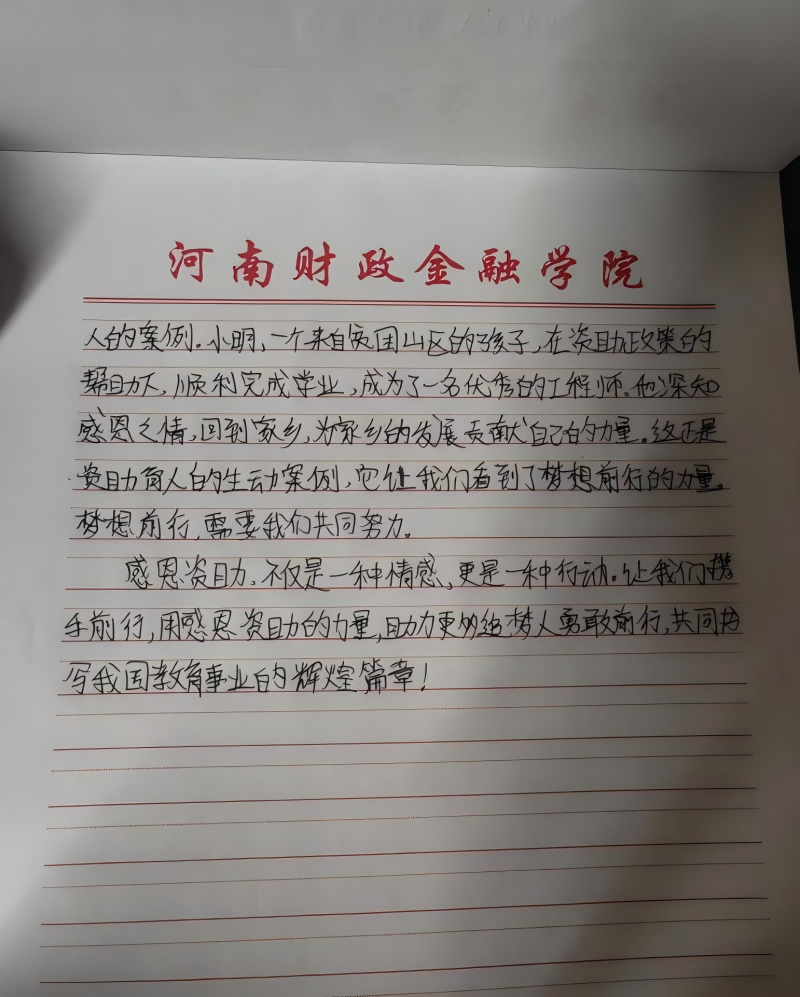 河南财政金融学院
人的案例。小明，一个来自贫困山区的孩子，在资助政策的
帮助下，顺利完成学业，成为了一名优秀的工程师。他深知
感恩之情，回到家乡，为家乡的发展贡献自己的力量。这正是
资助育人的生动案例，它让我们看到了梦想前行的力量。
梦想前行，需要我们共同努力。
感恩资助，不仅是一种情感，更是一种行动。让我们携
手前行，用感恩资助的力量，助力更多追梦人勇敢前行，共同书
写我国教育事业的辉煌篇章！